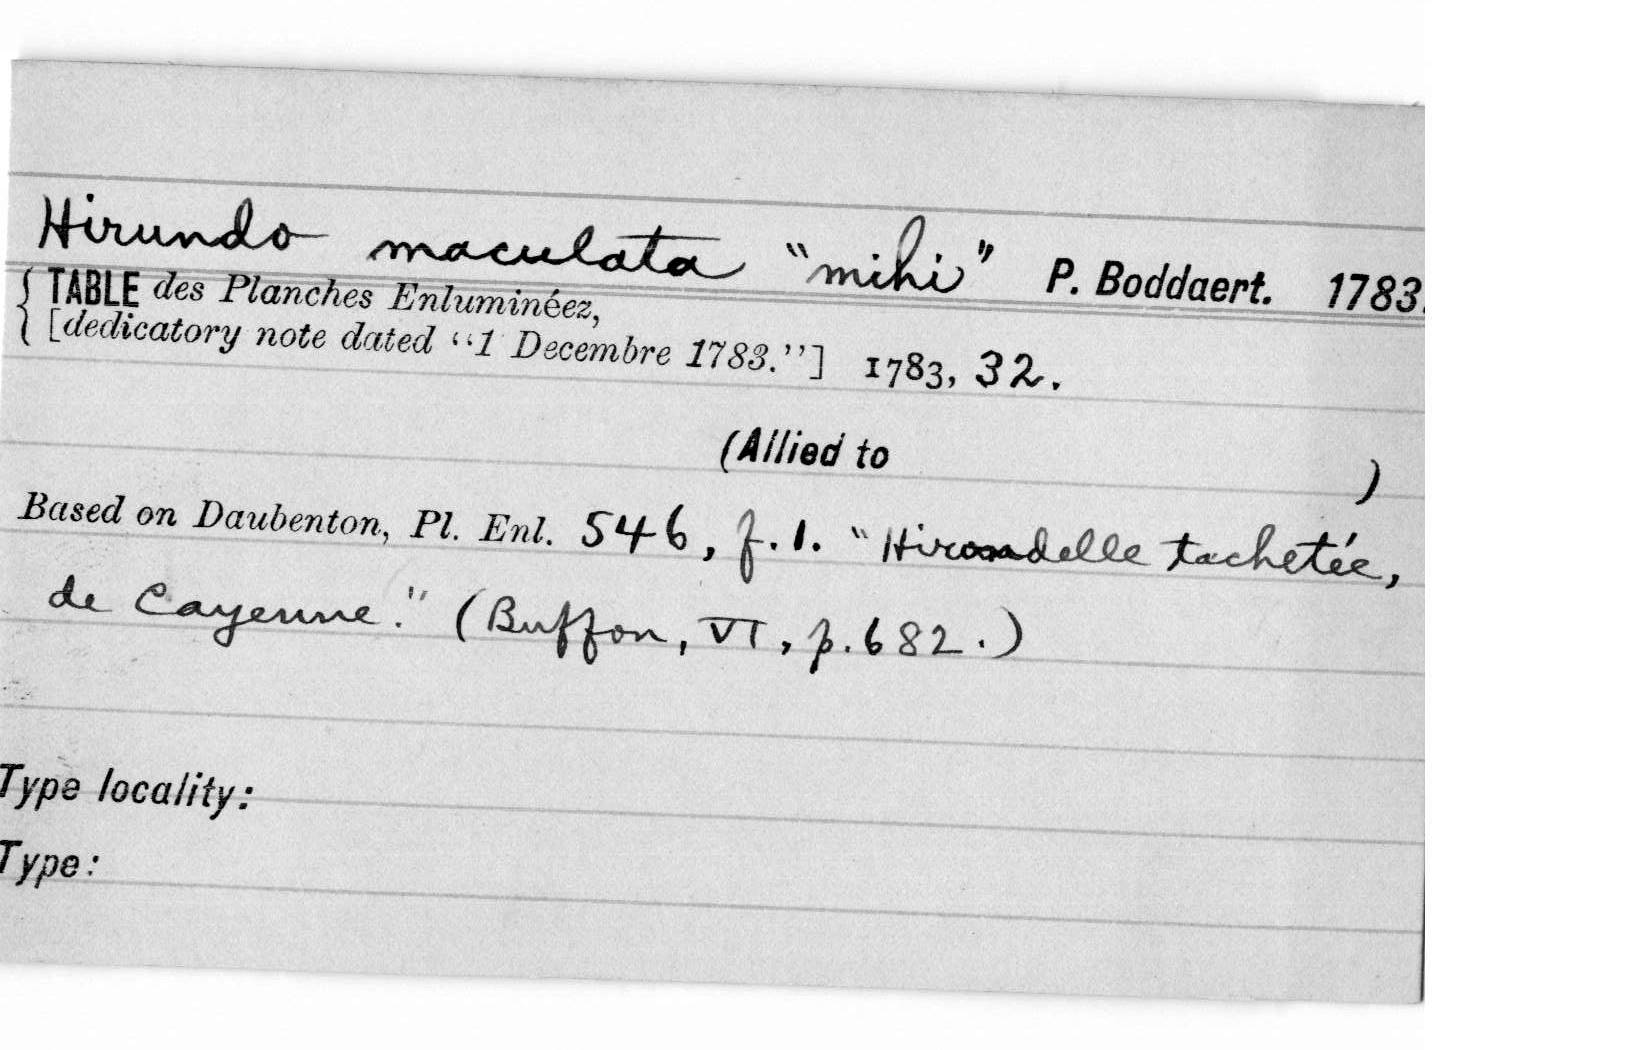 Hirundo maculata "mihi" P. Boddaert. 1783.
TABLE des Planches Enluminéez,
[dedicatory note dated "1 Decembre 1783."] 1783, 32.
(Allied to )
Based on Daubenton, Pl. Enl. 546, f. 1. "Hirondelle tachetée,
de Cayenne." (Buffon, VI, p. 682.)
Type locality:
Type: